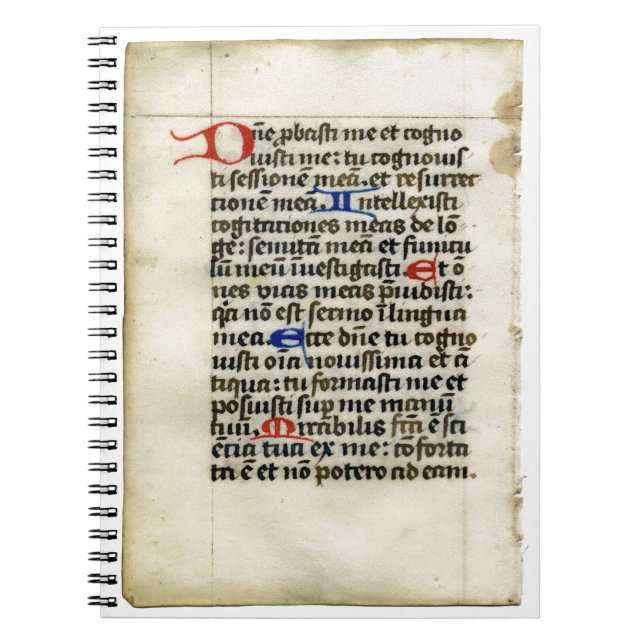 Dñe ꝓbasti me et cogno
uisti me: tu cognouis
ti sessionē meā. et resurrec
tionē meā. Intellexisti
cogitationes meas de lō
ge: semitā meā et funicu
lū meū īuestigasti. Et o
nes vias meas p̄uidisti:
qͥa nō est sermo ī lingua
mea. Ecce dñe tu cogno
uisti oīa nouissima et ā
tiqua: tu formasti me et
posuisti suꝑ me manū
tuā. Mirabilis fc̄ā ē sci
ētia tua ex me: cōforta
ta ē et nō potero ad eam.